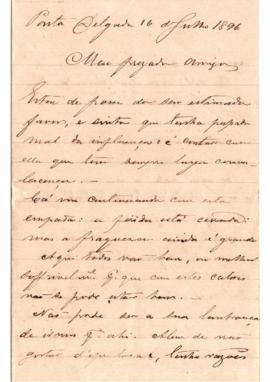 Ponta Delgada 16 de Julho 1896
Meu prezado amigo
Estou de posse do seu estimado
favor, e sinto que tenha passado
mal da influenza: é costume
ella que tem sempre larga
Cá vou continuando com esta
empada: a perda está
mas a fraqueza ainda é grande
Aqui todos vão bem, ou melhor
soffrivel. q. que com estes calores
não se pode estar bem.
Não pode ser a sua lembrança
de irmos p. ahi. Alem de não
gostar d'esse local, tenho razões